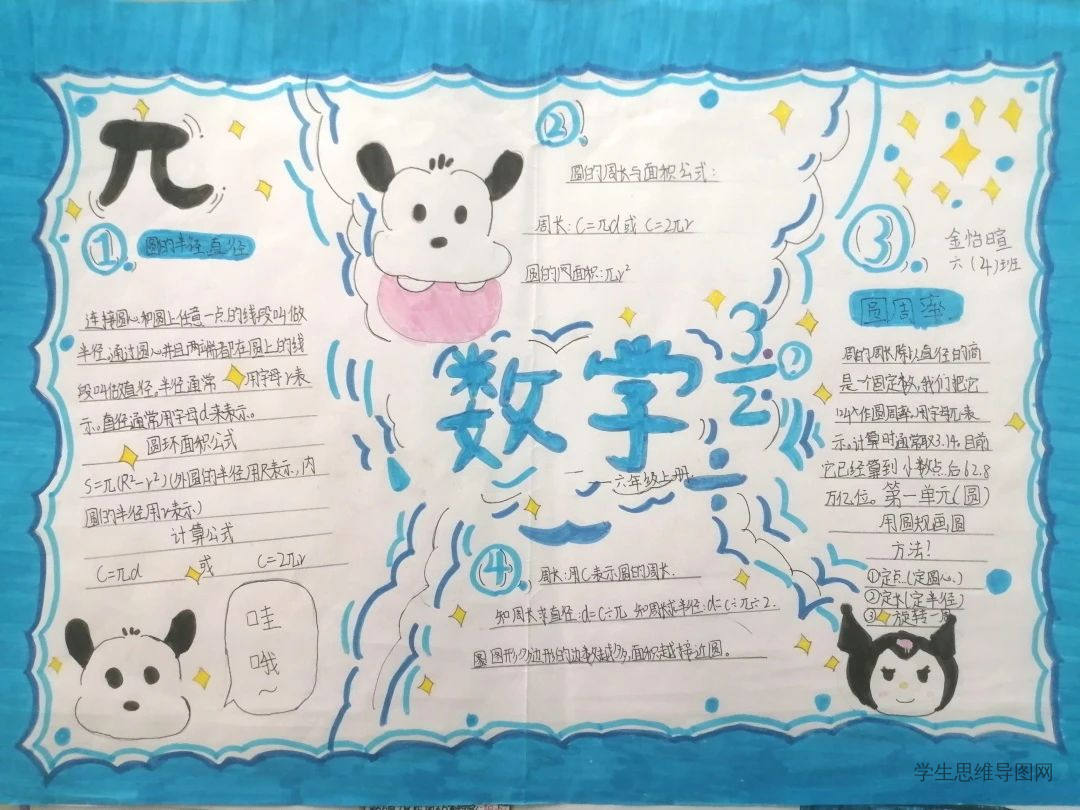 π
① 圆的半径直径
连接圆心和圆上任意一点的线段叫做
半径。通过圆心并且两端都在圆上的线
段叫做直径。半径通常用字母r表
示。直径通常用字母d来表示。
圆环面积公式
S=π(R²-r²)(外圆的半径用R表示,内
圆的半径用r表示)
计算公式
C=πd 或 C=2πr
哇
哦
~
②
圆的周长与面积公式:
周长:C=πd 或 C=2πr
圆的面积:πr²
数学
3
2
?
÷
一六年级上册
④ 周长:用C表示圆的周长.
知周长求直径:d=C÷π 知周长求半径:d=C÷π÷2.
圆形多边形的边数越多,面积越接近圆。
③
金怡暄
六(4)班
圆周率
圆的周长除以直径的商
是一个固定数,我们把它
叫作圆周率,用字母π表
示。计算时通常取3.14。目前
它已经算到小数点后62.8
万亿位。第一单元(圆)
用圆规画圆
方法?
①定点(定圆心)
②定长(定半径)
③旋转一周
学生思维导图网